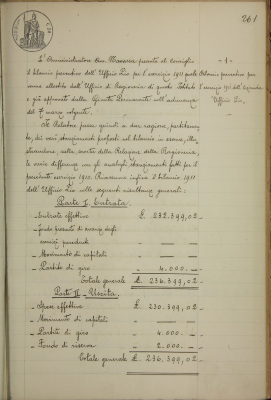 261
L'Amministratore Cav. Massarini presenta al Consiglio
il bilancio preventivo dell'Ufficio Pio per l'esercizio 1911 quale
venne allestito dall'Ufficio di Ragioneria di questo Istituto
e già approvato dalla Giunta Permanente nell'adunanza
del 7 marzo volgente.
- 1 -
Bilancio preventivo per
l'esercizio 1911 dell'
Ufficio Pio.
Il Relatore passa quindi a dar ragione, partitamente,
dei vari stanziamenti portati nel bilancio in esame,
sulla scorta della Relazione della Ragioneria,
le varie differenze con gli analoghi stanziamenti fatti per il
precedente esercizio 1910. Riassume infine il bilancio 1911
dell'Ufficio Pio nelle seguenti risultanze generali:
Parte I. Entrata.
- Entrate effettive £. 232.399,02 -
- Fondo presunto di avanzo degli
esercizi precedenti " — " —
- Movimento di capitali " — " —
- Partite di giro " 4.000 - " —
Totale generale £. 236.399,02 -
Parte II - Uscita.
- Spese effettive £. 230.399,02 -
- Movimento di capitali " — " —
- Partite di giro " 4.000 - " —
- Fondo di riserva " 2.000 - " —
Totale generale £. 236.399,02 -